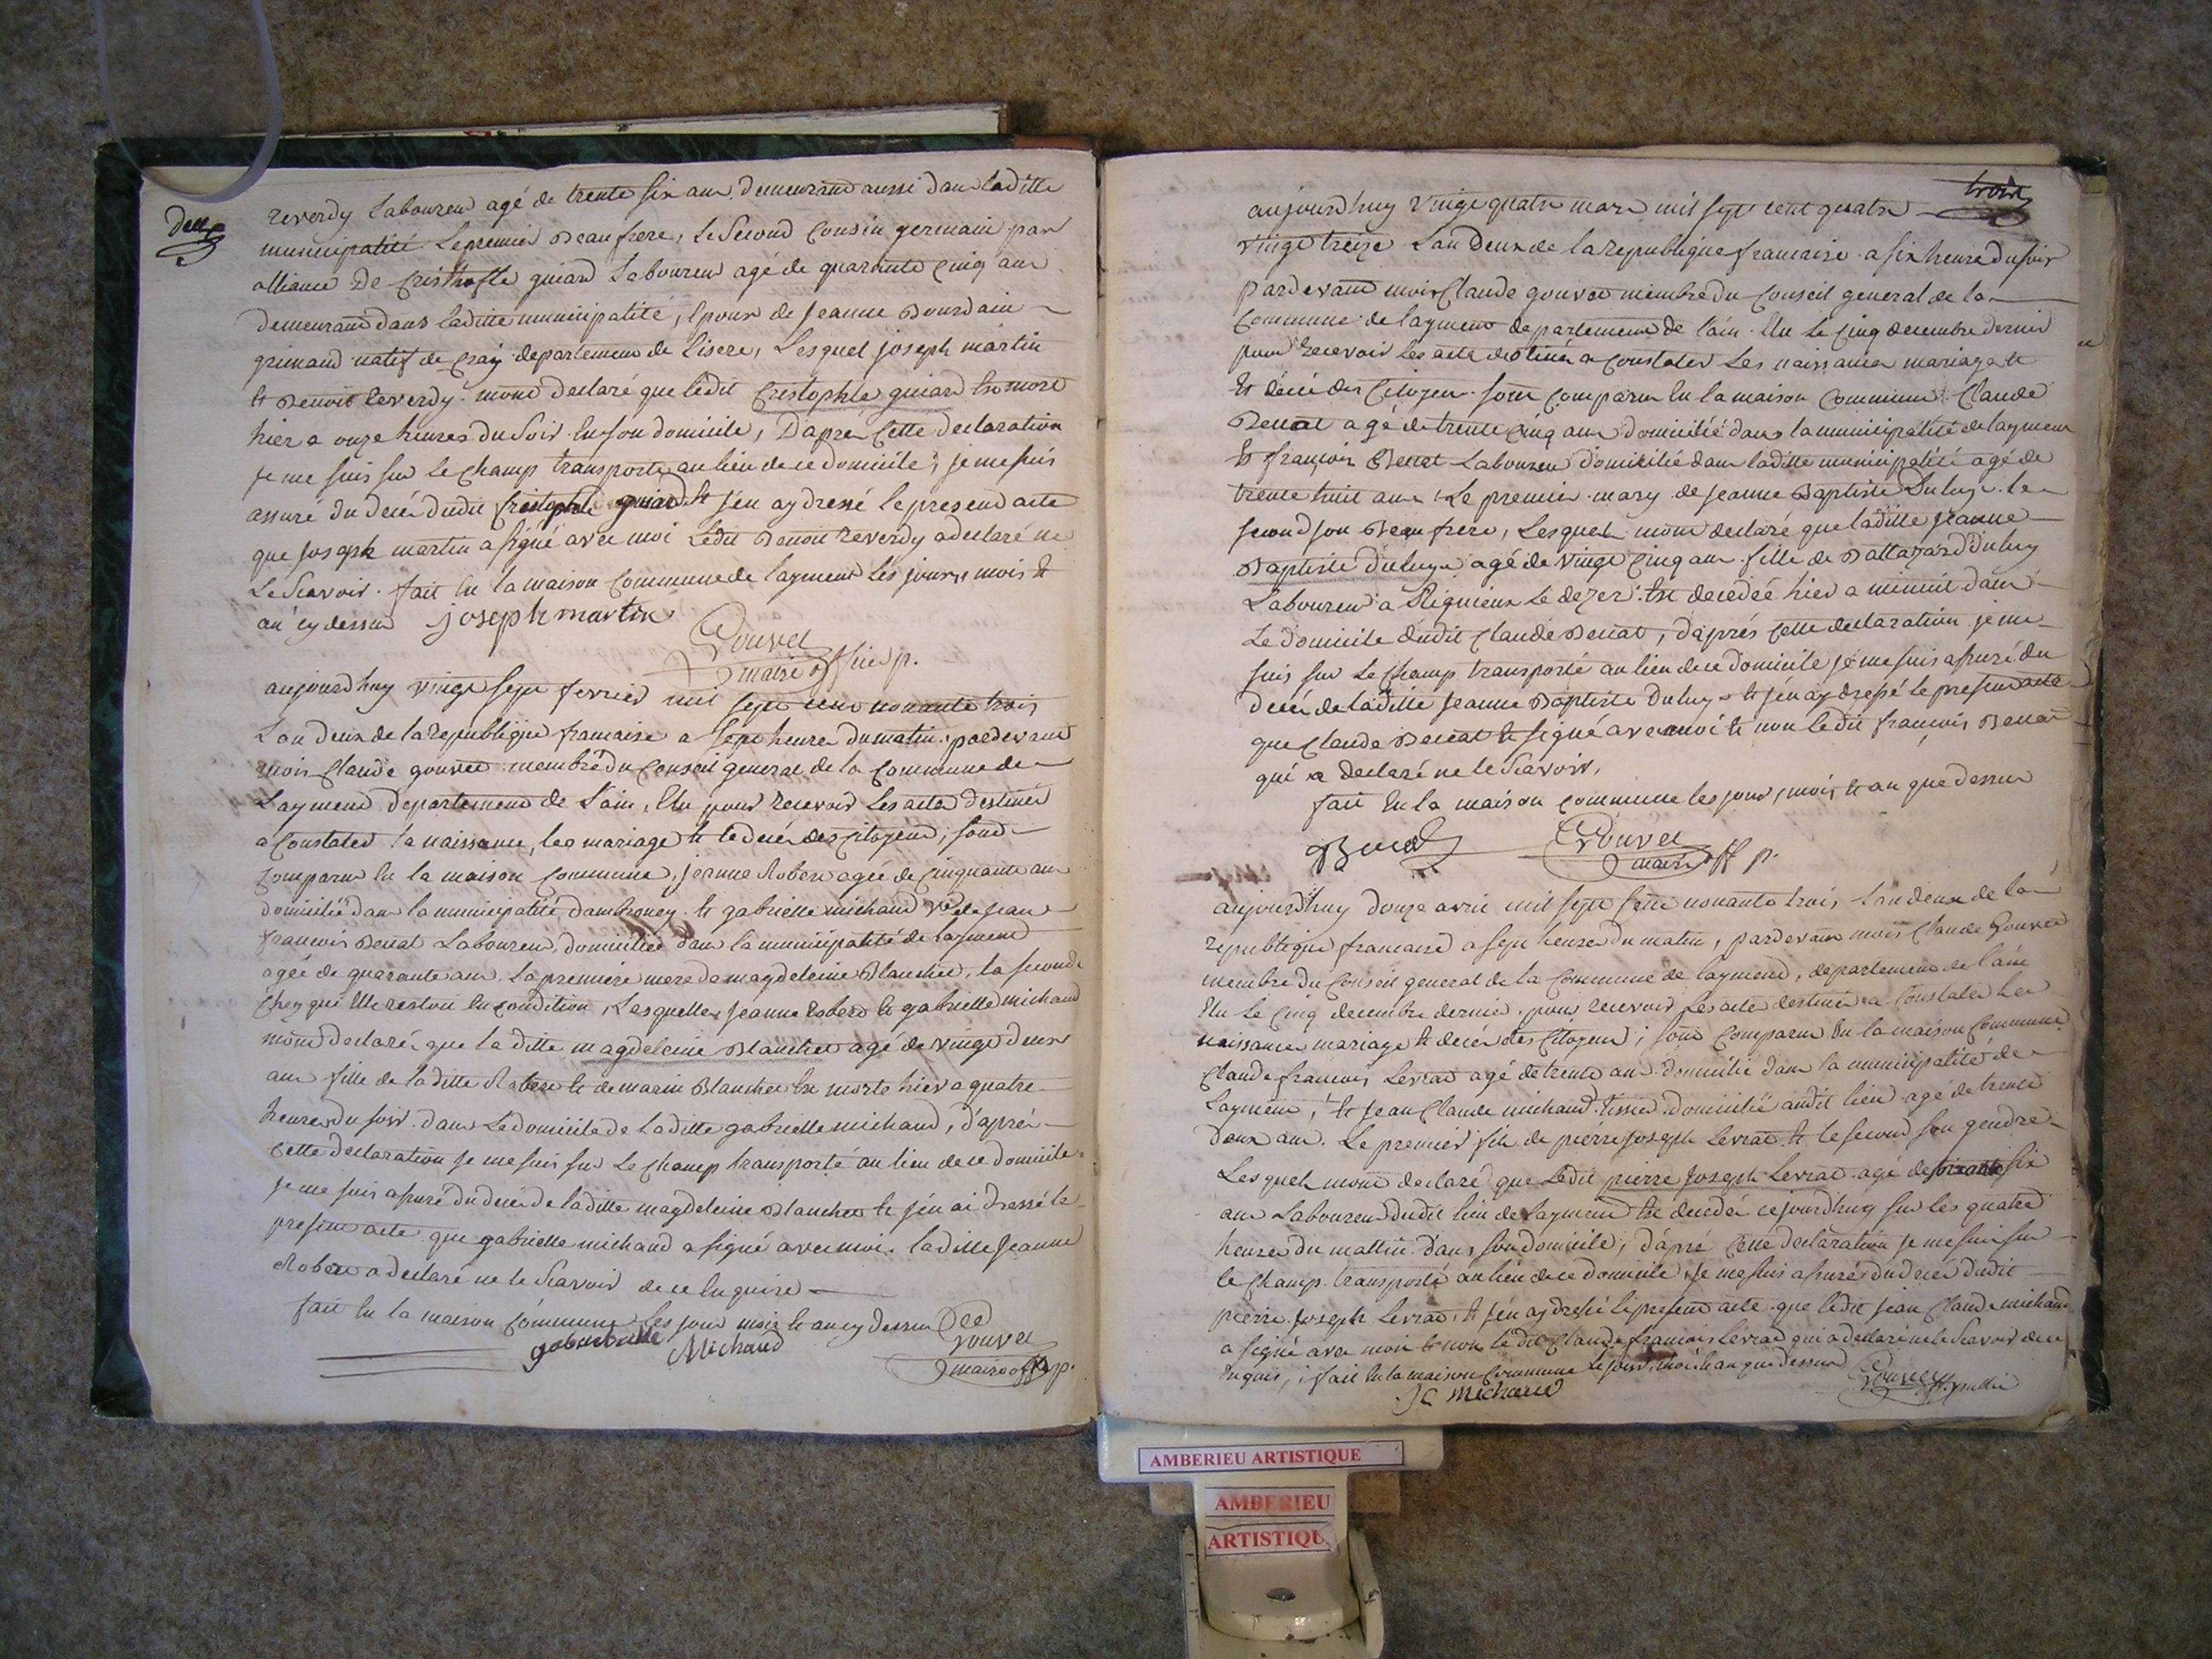 deux
reverdy Laboureur agé de trente six ans demeurand aussi dans laditte
municipalité. Le premier Beaufrere, le Second Cousin germain par
alliance De Cristhofle guiard Laboureur agé de quarante cinq ans
demeurand dans laditte municipalité, Epoux de Jeanne Bourdain
grimand natif de departement de lisere, Lesquel joseph martin
et Benoit Reverdy mont declaré que ledit Cristophle guiard est mort
hier a onze heures du Soir en son domicile, D'apres Cette declaration
je me suis sur le Champ transporté au lieu de ce domicile, je me suis
assuré du decés dudit Cristophle guiard et j'en ay dressé le presend acte
que joseph martin a signé avec moi Ledit Benoit Reverdy a declaré ne
Le Scavoir. fait en la maison Commune de laymend Les jours mois et
an cy dessus joseph martin
Gouvet
maire officier p.
aujourdhuy vingt sept fevrier mil sept cent nonante trois
L'an Deux de la Republique francaise a sept heures du matin. pardevand
mois Claude gouvet membre du Conseil general de la Commune de
Laymend departement de L'ain, Elu pour recevoir Les actes destinés
a Constater la naissance, les mariage et le decés des Citoyens, sond
Comparus en la maison Commune, jeanne Robere agée de Cinquante ans
domiciliée dans la municipalité dambroney. et gabrielle michaud Ve de jean
francois Benat Laboureur, domiciliée dans la municipalité de laymend
agée de quarante ans. La premiere mere de magdeleine Blanchet, la seconde
Chez qui Elle restoit en Condition, Lesquelles jeanne Robere et gabrielle michaud
mont declaré que laditte magdeleine Blanchet agé de vingt deux
ans fille de laditte Robere et de marin Blanchet est morte hier a quatre
heures du soir. dans Le domicile de Laditte gabrielle michaud, d'aprés
Cette declaration je me suis sur Le Champ transporté au lieu de ce domicile
je me suis assuré du decés de laditte magdeleine Blanchet et j'en ai dressé le
present acte que gabrielle michaud a signé avec moi. laditte jeanne
Robere a declaré ne le Scavoir de ce Enquise
fait en la maison Commune Les jour mois et an cy dessus
Gouvet
Michaud
maire off p.
trois
aujourdhuy vingt quatre mars mil sept cent quatre
vingt treize L'an Deux de la republique francaise a six heure du soir
pardevand mois Claude gouvet membre du Conseil general de la
Commune de laymend departement de l'ain. Elu le Cinq decembre dernier
pour recevoir les acte destinés a Constater Les naissances mariage et
Et decés des Citoyens. sont Comparus En la maison Commune Claude
Benat agé de trente Cinq ans domicilié dans la municipalité de laymend
Et francois Benat Laboureur domicilié dans laditte municipalité agé de
trente huit ans. Le premier mary de jeanne Baptiste Duluy. le
second son Beau frere, Lesquels mont declaré que laditte jeanne
Baptiste Duluy agé de vingt Cinq ans. fille de Baltazard Duluy
Laboureur a Rignieux Le dezer. est decedée hier a minuit dans
Le domicile dudit Claude Benat, d'aprés Cette declaration je me
suis sur Le Champ transporté au lieu de ce domicile je me suis assuré du
decés de laditte jeanne Baptiste Duluy et j'en ay dressé le present acte
que Claude Benat et signé avec moi et non ledit francois Benat
qui a declaré ne le Scavoir.
fait En la maison Commune les jour, mois, et an que dessus
Gouvet
maire off p.
aujourdhuy douze avril mil sept Cent nonante trois, L'an deux de la
republique francaise a sept heures du matin, pardevant mois Claude Gouvet
membre du Conseil general de la Commune de laymend, departement de l'ain
Elu Le Cinq decembre dernier. pour recevoir Les actes destinés a Constater les
naissances mariage et decés des Citoyens; sont Comparus En la maison Commune
Claude francois Levrat agé de trente ans. domicilié dans la municipalité de
Laymend, et jean Claude michaud tissier domicilié audit lieu agé de trente
deux ans. Le premier fils de pierre joseph Levrat et le second son gendre
Lesquels mont declaré que Ledit pierre joseph Levrat agé de soixante six
ans Laboureur dudit lieu de laymend est decedé cejourdhuy sur les quatre
heures du mattin dans son domicile, d'aprés Cette declaration je me suis sur
le Champ transporté au lieu de ce domicile je me suis assuré du decés dudit
pierre joseph Levrat, et j'en ay dressé le present acte que ledit jean Claude michaud
a signé avec moi et non ledit Claude francois Levrat qui a declaré ne le Scavoir de ce
Enquis, fait En la maison Commune le jour, mois et an que dessus
Gouvet
JC michaud
AMBERIEU ARTISTIQUE
AMBERIEU
ARTISTIQU